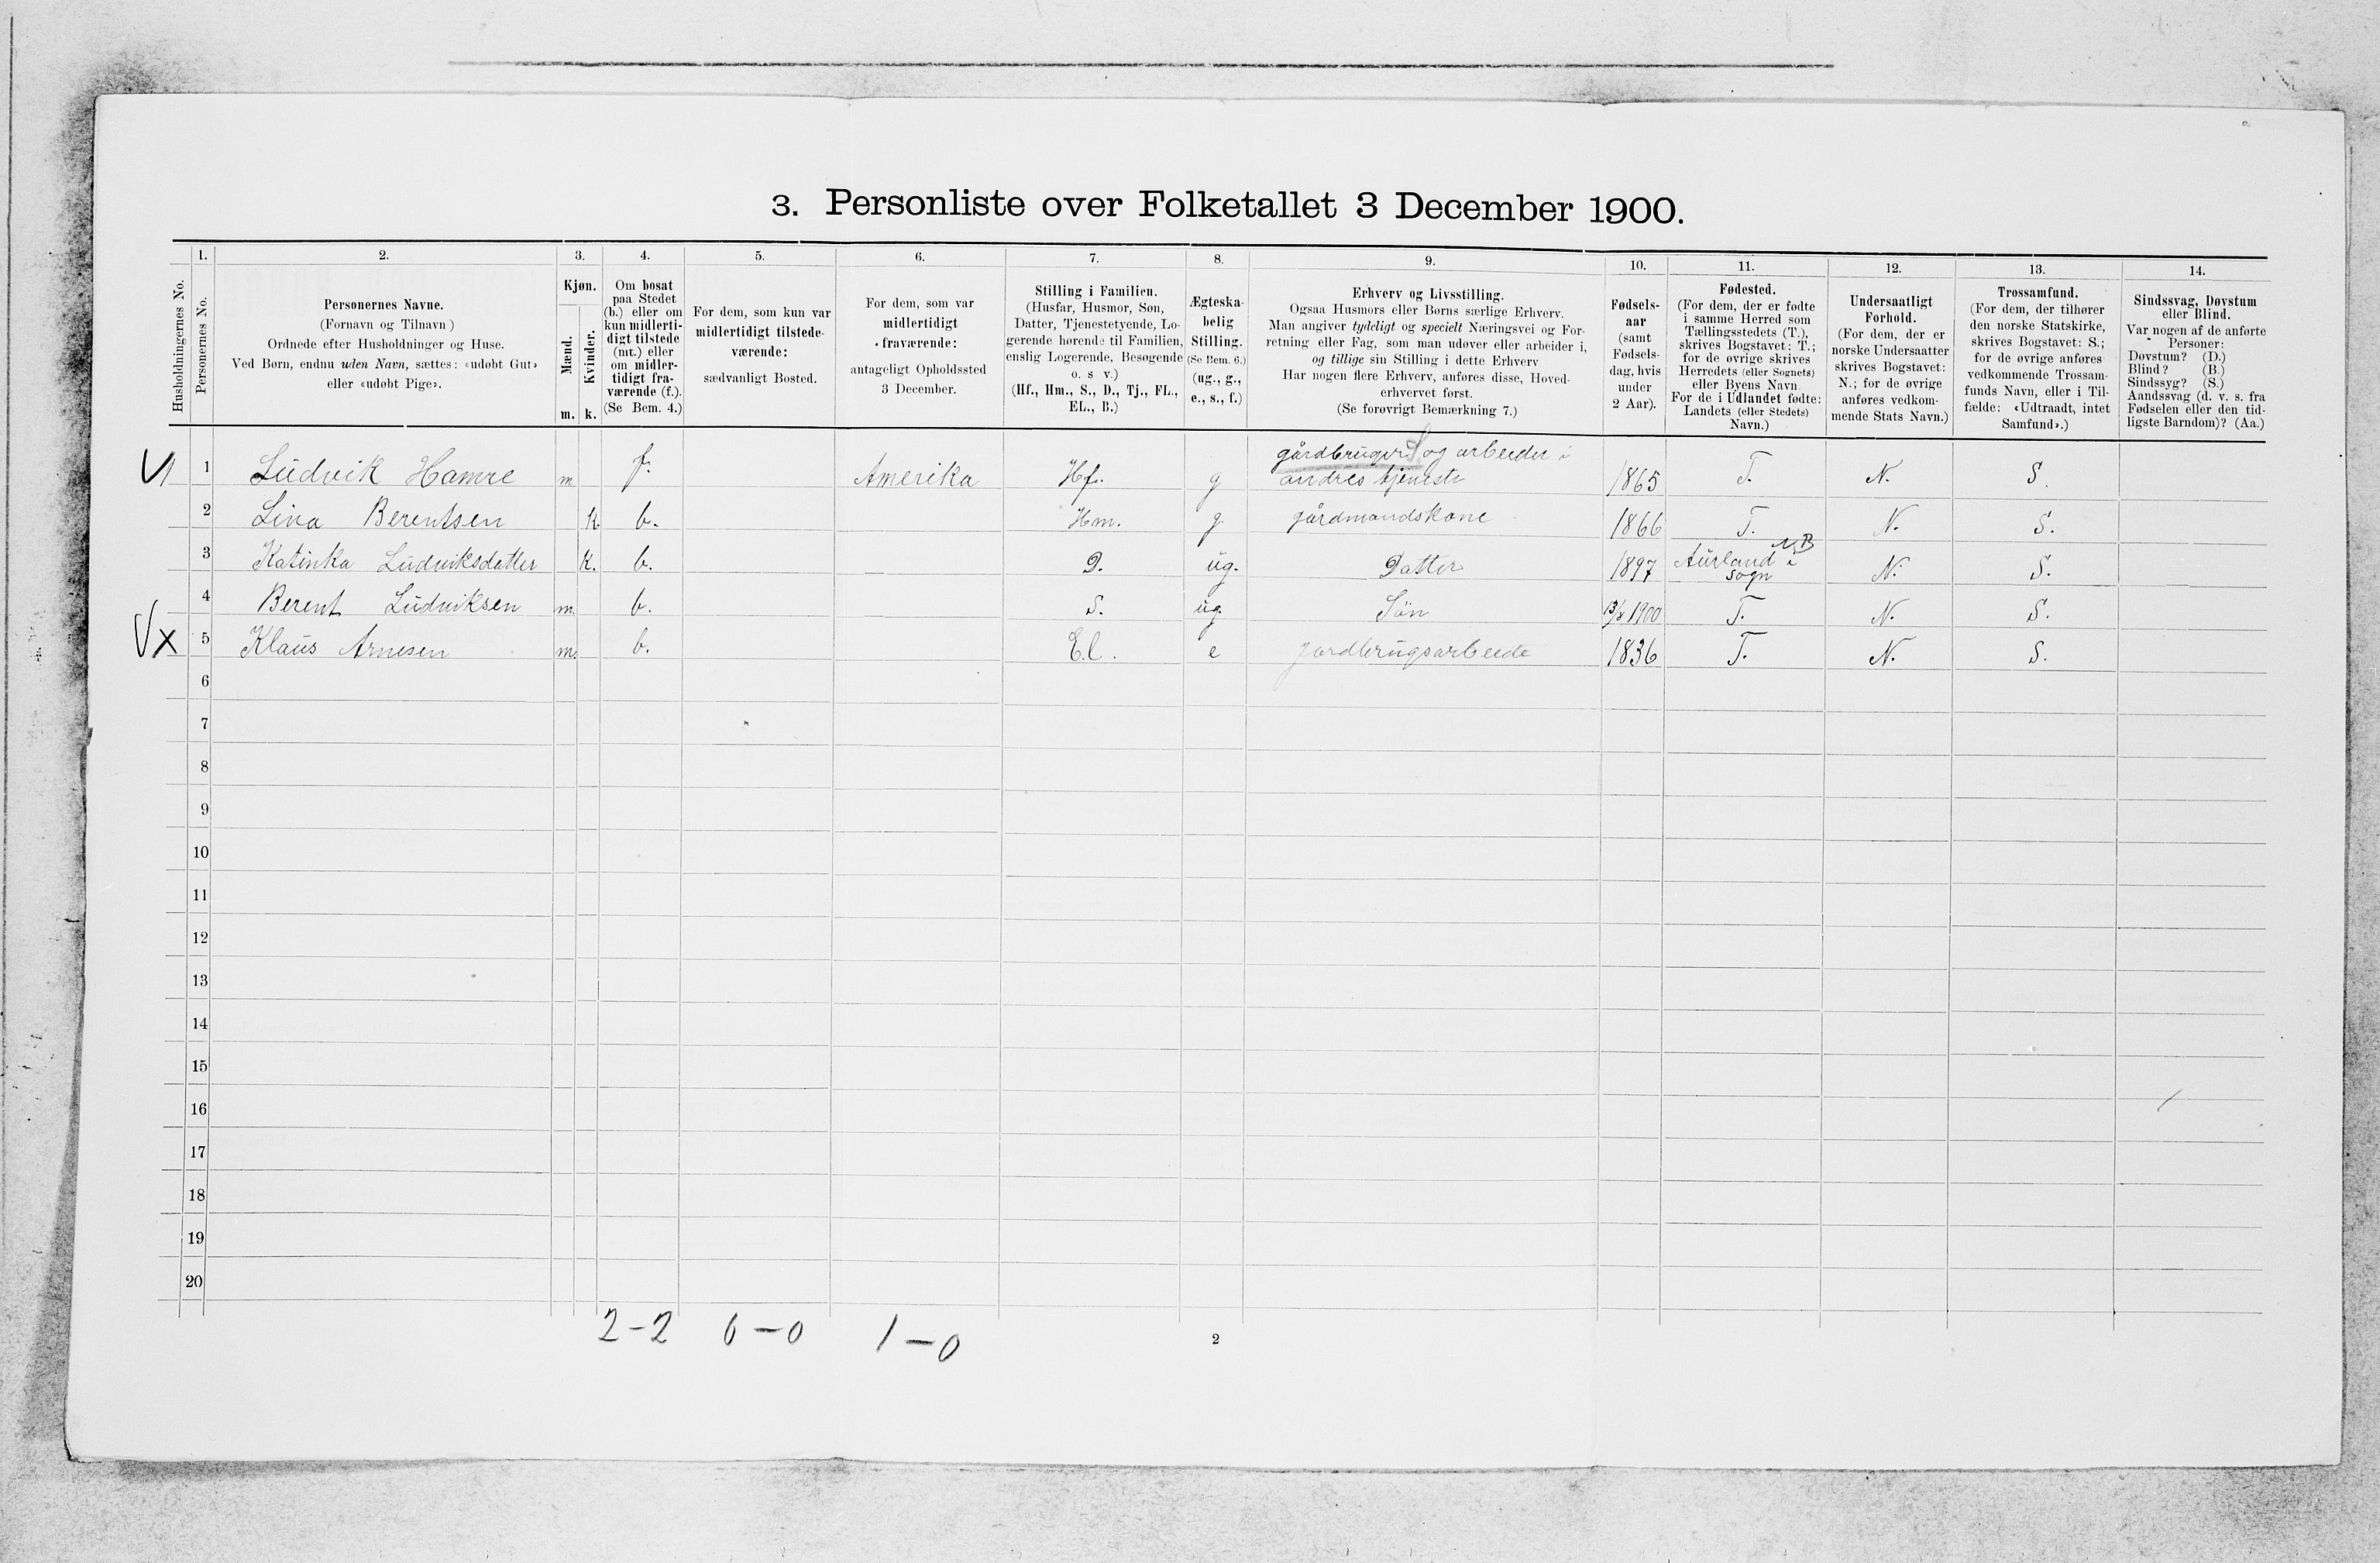 3. Personliste over Folketallet 3 December 1900.
1. 2. 3. 4. 5. 6. 7. 8. 9. 10. 11. 12. 13. 14.
Husholdningernes No.
Personernes No.
Personernes Navne.
(Fornavn og Tilnavn)
Ordnede efter Husholdninger og Huse.
Ved Børn, endnu uden Navn, sættes: «udøbt Gut»
eller «udøbt Pige».
Kjøn.
Mænd.
Kvinder.
m. k.
Om bosat
paa Stedet
(b.) eller om
kun midlerti-
digt tilstede
(mt.) eller
om midler-
tidigt fra-
værende (f.).
(Se Bem. 4.)
For dem, som kun var
midlertidigt tilstede-
værende:
sædvanligt Bosted.
For dem, som var
midlertidigt
fraværende:
antageligt Opholdssted
3 December.
Stilling i Familien.
(Husfar, Husmor, Søn,
Datter, Tjenestetyende, Lo-
gerende hørende til Familien,
enslig Logerende, Besøgende
o. s v.)
(Hf., Hm., S., D., Tj., FL.,
EL., B.)
Ægteska-
belig
Stilling.
(Se Bem. 6.)
(ug., g.,
e., s., f.)
Erhverv og Livsstilling.
Ogsaa Husmors eller Børns særlige Erhverv.
Man angiver tydeligt og specielt Næringsvei og For-
retning eller Fag, som man udøver eller arbeider i,
og tillige sin Stilling i dette Erhverv
Har nogen flere Erhverv, anføres disse, Hoved-
erhvervet først.
(Se forøvrigt Bemærkning 7.)
Fødsels-
aar
(samt
Fødsels-
dag, hvis
under
2 Aar).
Fødested.
(For dem, der er fødte
i samme Herred som
Tællingsstedets (T.),
skrives Bogstavet: T.;
for de øvrige skrives
Herredets (eller Sognets)
eller Byens Navn
For de i Udlandet fødte:
Landets (eller Stedets)
Navn.)
Undersaatligt
Forhold.
(For dem, der er
norske Undersaatter
skrives Bogstavet:
N.; for de øvrige
anføres vedkom-
mende Stats Navn.)
Trossamfund.
(For dem, der tilhører
den norske Statskirke,
skrives Bogstavet: S.;
for de øvrige anføres
vedkommende Trossam-
funds Navn, eller i Til-
fælde: «Udtraadt, intet
Samfund».)
Sindssvag, Døvstum
eller Blind.
Var nogen af de anførte
Personer:
Døvstum? (D.)
Blind? (B.)
Sindssyg? (S.)
Aandssvag (d. v. s. fra
Fødselen eller den tid-
ligste Barndom)? (Aa.)
gårdbruger S og arbeider i
1 Ludvik Hamre m f. Amerika Hf. g andres tjeneste 1865 T. N. S.
2 Lina Berentsen k. b. Hm. g. gårdmandskone 1866 T. N. S.
NB
3 Katinka Ludviksdatter k. b. D. ug. Datter 1897 Aurland i N. S.
sogn
4 Berent Ludviksen m. b. S. ug. Sön 13/8 1900 T. N. S.
x 5 Klaus Arnesen m. b. E.l. e gardbrugsarbeide 1836 T. N. S.
6
7
8
9
10
11
12
13
14
15
16
17
18
19
20
2-2 0-0 1-0
2